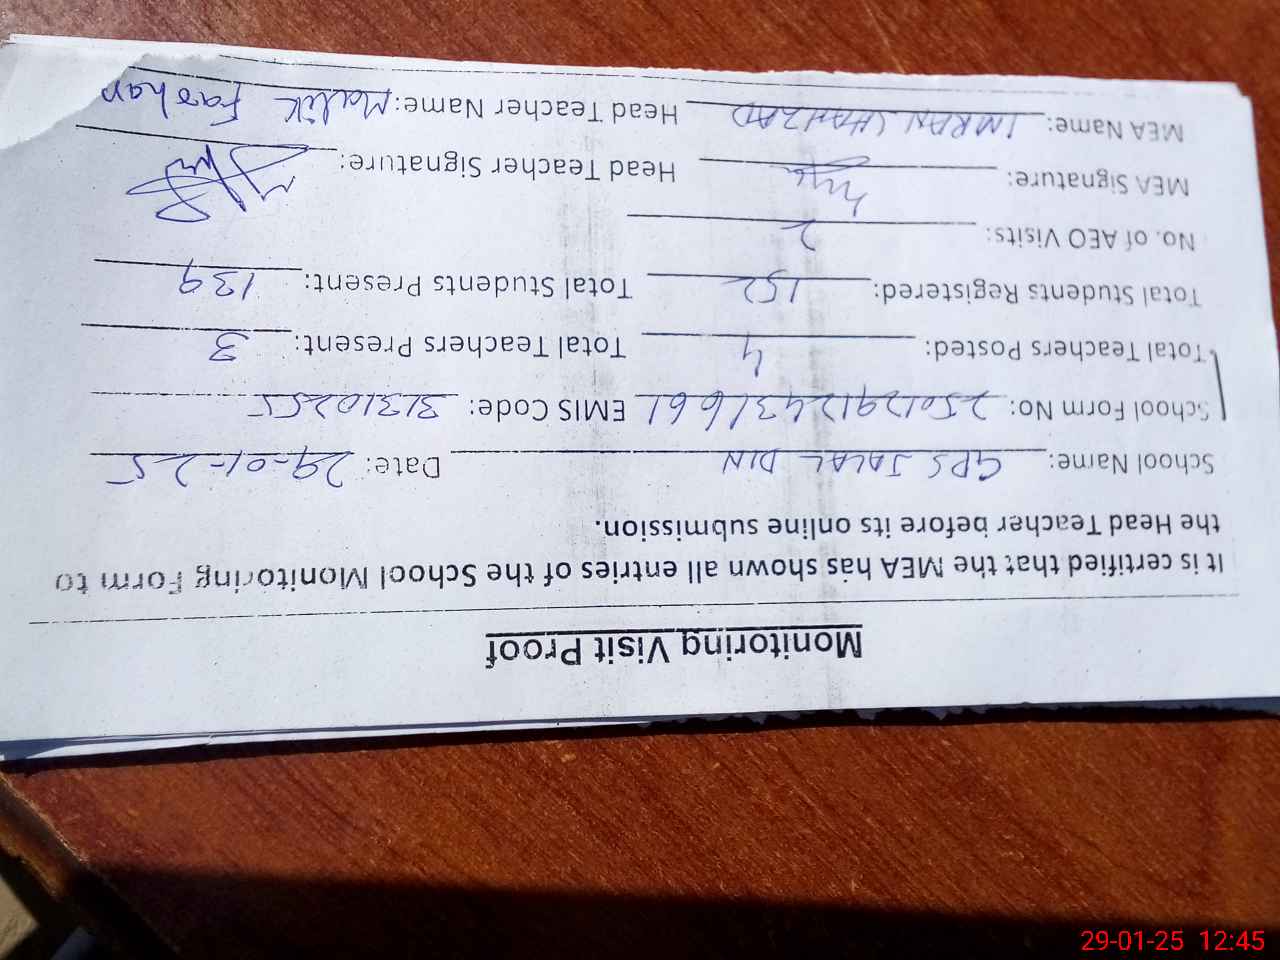 Monitoring Visit Proof
It is certified that the MEA has shown all entries of the School Monitoring Form to
the Head Teacher before its online submission.
School Name: GPS JALAL DIN Date: 29-01-25
School Form No: 250129124316661 EMIS Code: 31310255
Total Teachers Posted: 4 Total Teachers Present: 3
Total Students Registered: 152 Total Students Present: 139
No. of AEO Visits: 2
MEA Signature: Head Teacher Signature:
MEA Name: IMRAN SHAHZAD Head Teacher Name: Malik
29-01-25 12:45